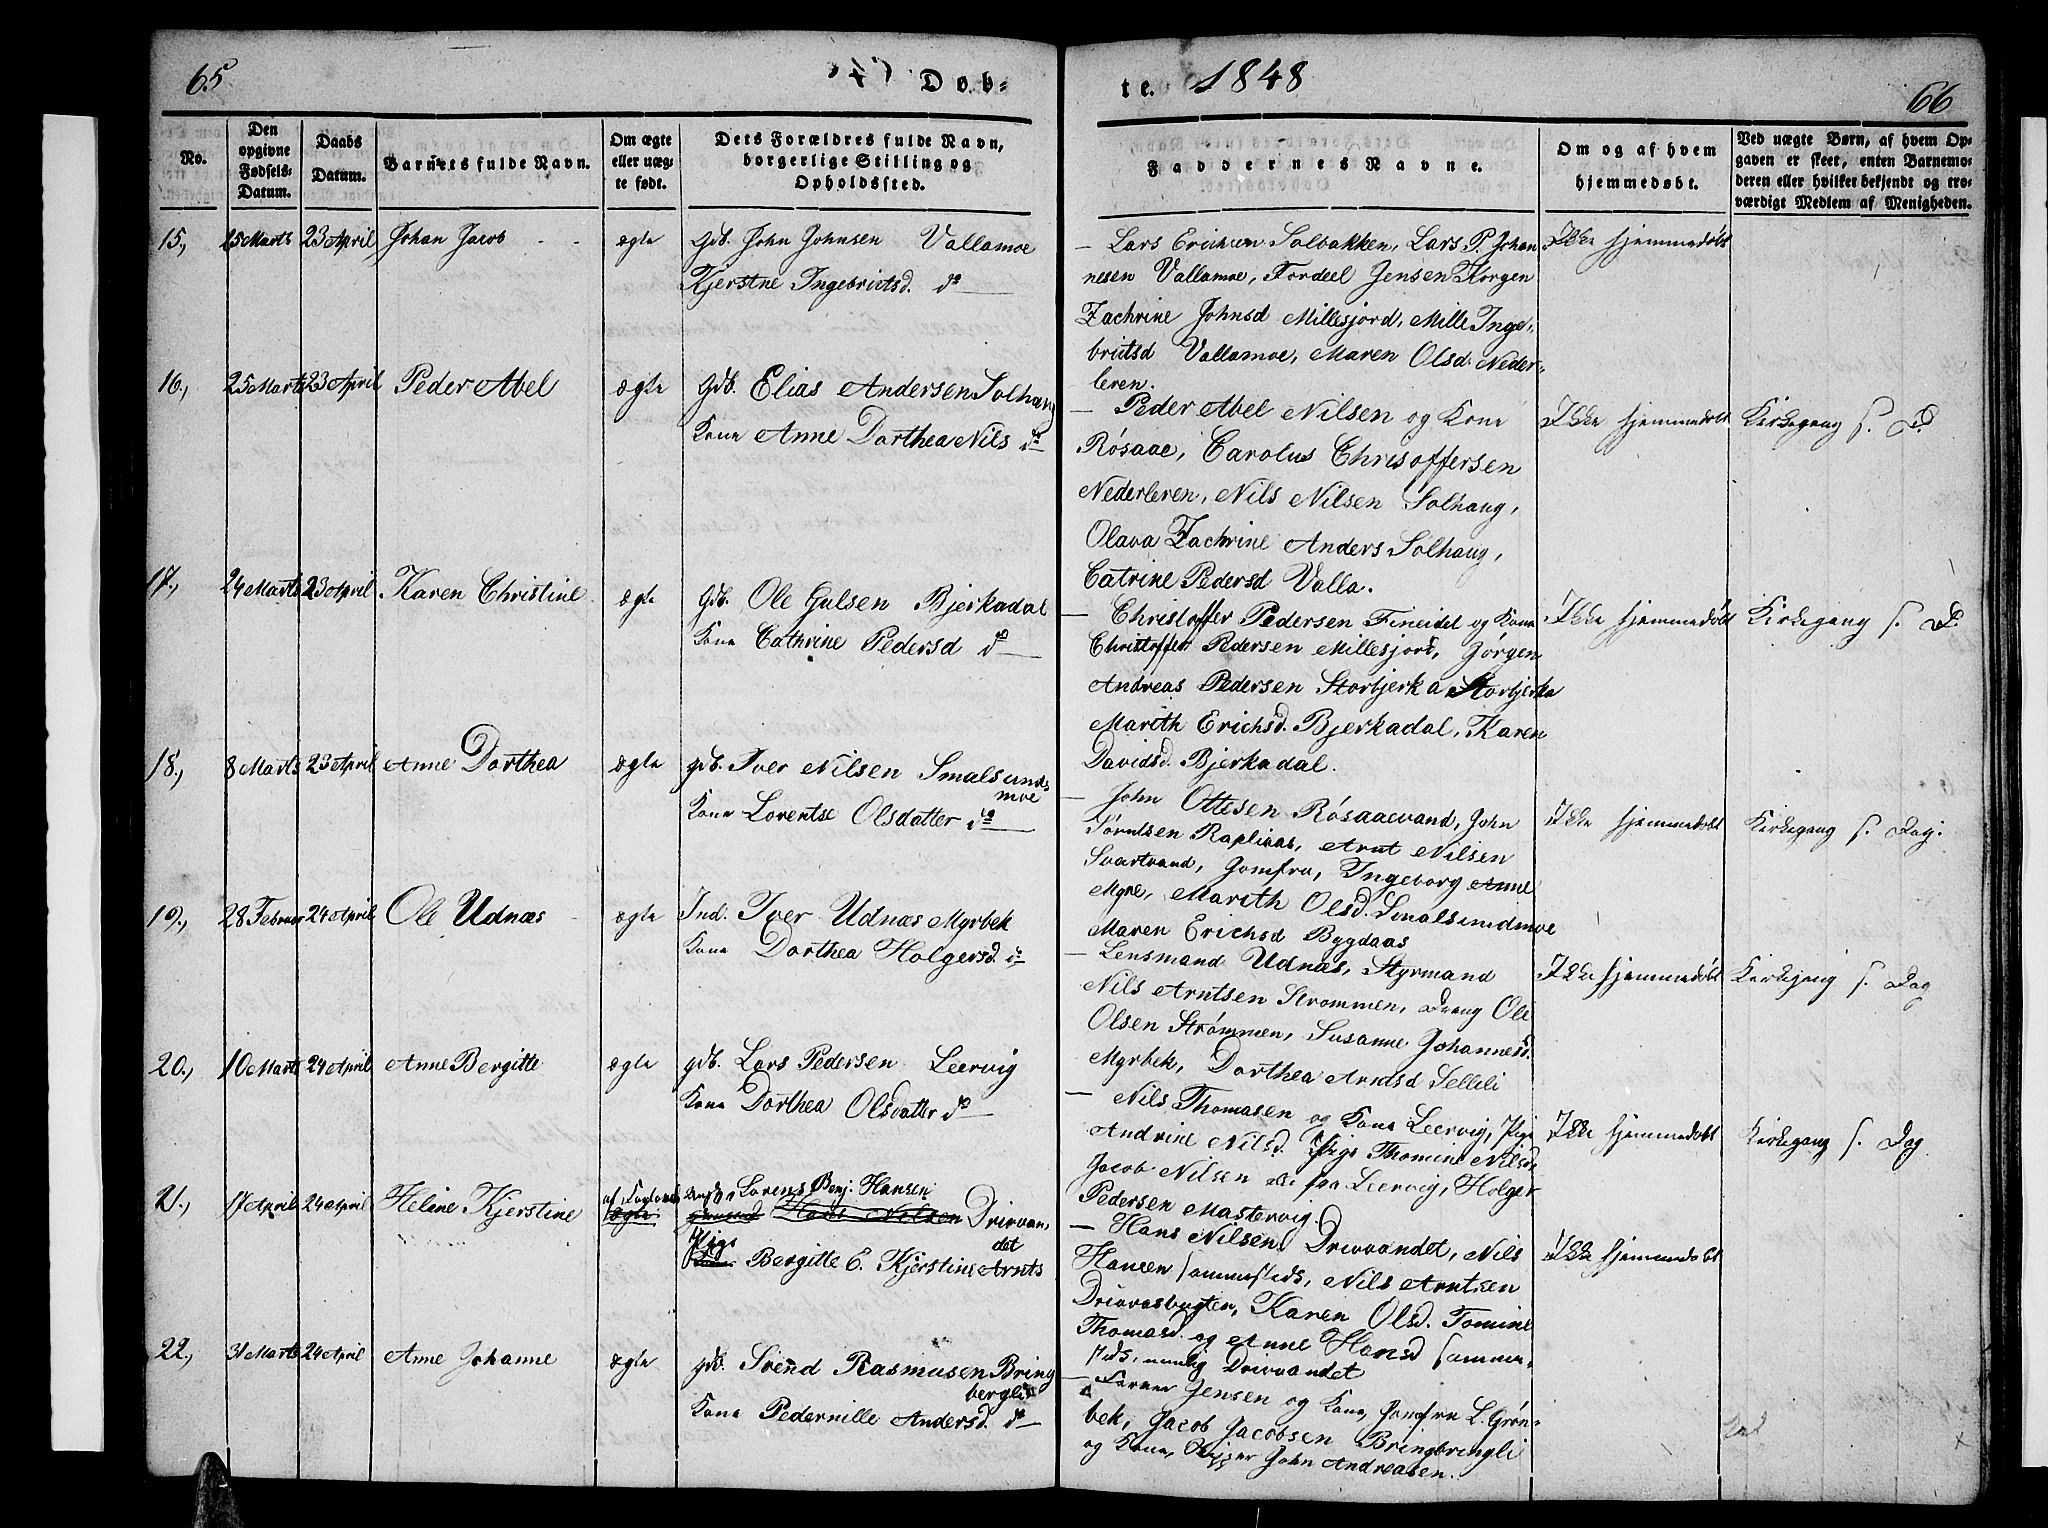 65.
Døb-
te.
1848
66
No.
Den opgivne Fødsels-Datum.
Daabs Datum.
Barnets fulde Navn.
Om ægte eller uæg-te født.
Dets Forældres fulde Navn, borgerlige Stilling og Opholdssted.
Faddernes Navne.
Om og af hvem hjemmedøbt.
Ved uægte Børn, af hvem Op-gaven er skeet, enten Barnemo-deren eller hvilket bekjendt og tro-værdigt Medlem af Menigheden.
15., 25 Marts 23 April Johan Jacob ægte Gdb. John Johnsen Vallamoe
Kjerstne Ingebrigtsd. do
Lars Erichsen Solbakken, Lars P. Johan
nesen Vallamoe, Fordeel Jensen Korgen
Zachrine Johnsd Millesjord, Mille Inge-
brigtsd Vallamoe, Maren Olsd. Neder-
leren.
Ikke hjemmedøbt
16., 25 Marts 23 April Peder Abel ægte Gdb. Elias Andersen Solhaug
Kone Anne Dorthea Nils do
Peder Abel Nilsen og Kone
Røsaae, Carolus Chrisoffersen
Nederleren, Nils Nilsen Solhaug,
Olava Zachrine Anders Solhaug,
Catrine Pedersd Valla.
Ikke hjemmedøbt Kirkegang s. D.
17., 24 Marts 23 April Karen Christine ægte Gdb. Ole Gulsen Bjerkadal
Kone Cathrine Pedersd do
Christoffer Pedersen Fineidet og Kone
Christoffer Pedersen Millesjord, Jørgen
Andreas Pedersen Storbjerka, Storbjerka
Marith Erichsd. Bjerkadal, Karen
Davidsd. Bjerkadal.
Ikke hjemmedøbt Kirkegang s. D.
18., 8 Marts 23 April Anne Dorthea ægte gdb. Iver Nilsen Smalsunds
moe
Kone Lorentse Olsdatter do
John Ottesen Røsaaevand, John
Raplivas, Arnt Nilsen
Svartvand, Jomfru, Ingeborg Anne
Myre, Marith Olsd. Smalsundmoe
Maren Erichsd Bygdaas
Ikke hjemmedøbt Kirkegang s. Dag.
19., 28 Februar 24 April Ole Udnæs ægte Ind. Iver Udnæs Myrbek
Kone Dorthea Holgersd. do
Lensmand Udnæs, Styrmand
Nils Arntsen Strømmen, Dreng Ole
Olsen Strømmen, Susanne Johannesd.
Myrbek, Dorthea Arntsd Selleli
Ikke hjemmedøbt Kirkegang s. Dag
20., 10 Marts 24 April Anne Bergitte ægte gdb. Lars Pedersen Leervig
Kone Dorthea Olsdatter do
Nils Thomasen og Kone Leervig, Pige
Andrine Nilsd. Pige Thomine Nilsd,
Jacob Nilsen alle fra Leervig, Holger
Pedersen Mastervig.
Ikke hjemmedøbt Kirkegang s. Dag
21., 17 April 24 April Heline Kjerstine ægte Lorens Benj. Hansen
Hans Nilsen Drivvan
det
Pige Bergitte E. Kjerstine Arnts
Hans Nilsen Drivvandet, Nils
Hansen sammesteds, Nils Arntsen
Drivvasbugten, Karen Olsd. Tomine
Thomasd. og Anne Hansd sammen-
steds, Drivvandet
Ikke hjemmedøbt
22., 31 Marts 24 April Anne Johanne ægte gdb. Svend Rasmusen Bring
bergli
Kone Pedernille Andersd. do
Jensen og Kone, Jomfru L. Grøn-
bek, Jacob Jacobsen Bringbringli
og Kone, John Andreasen.